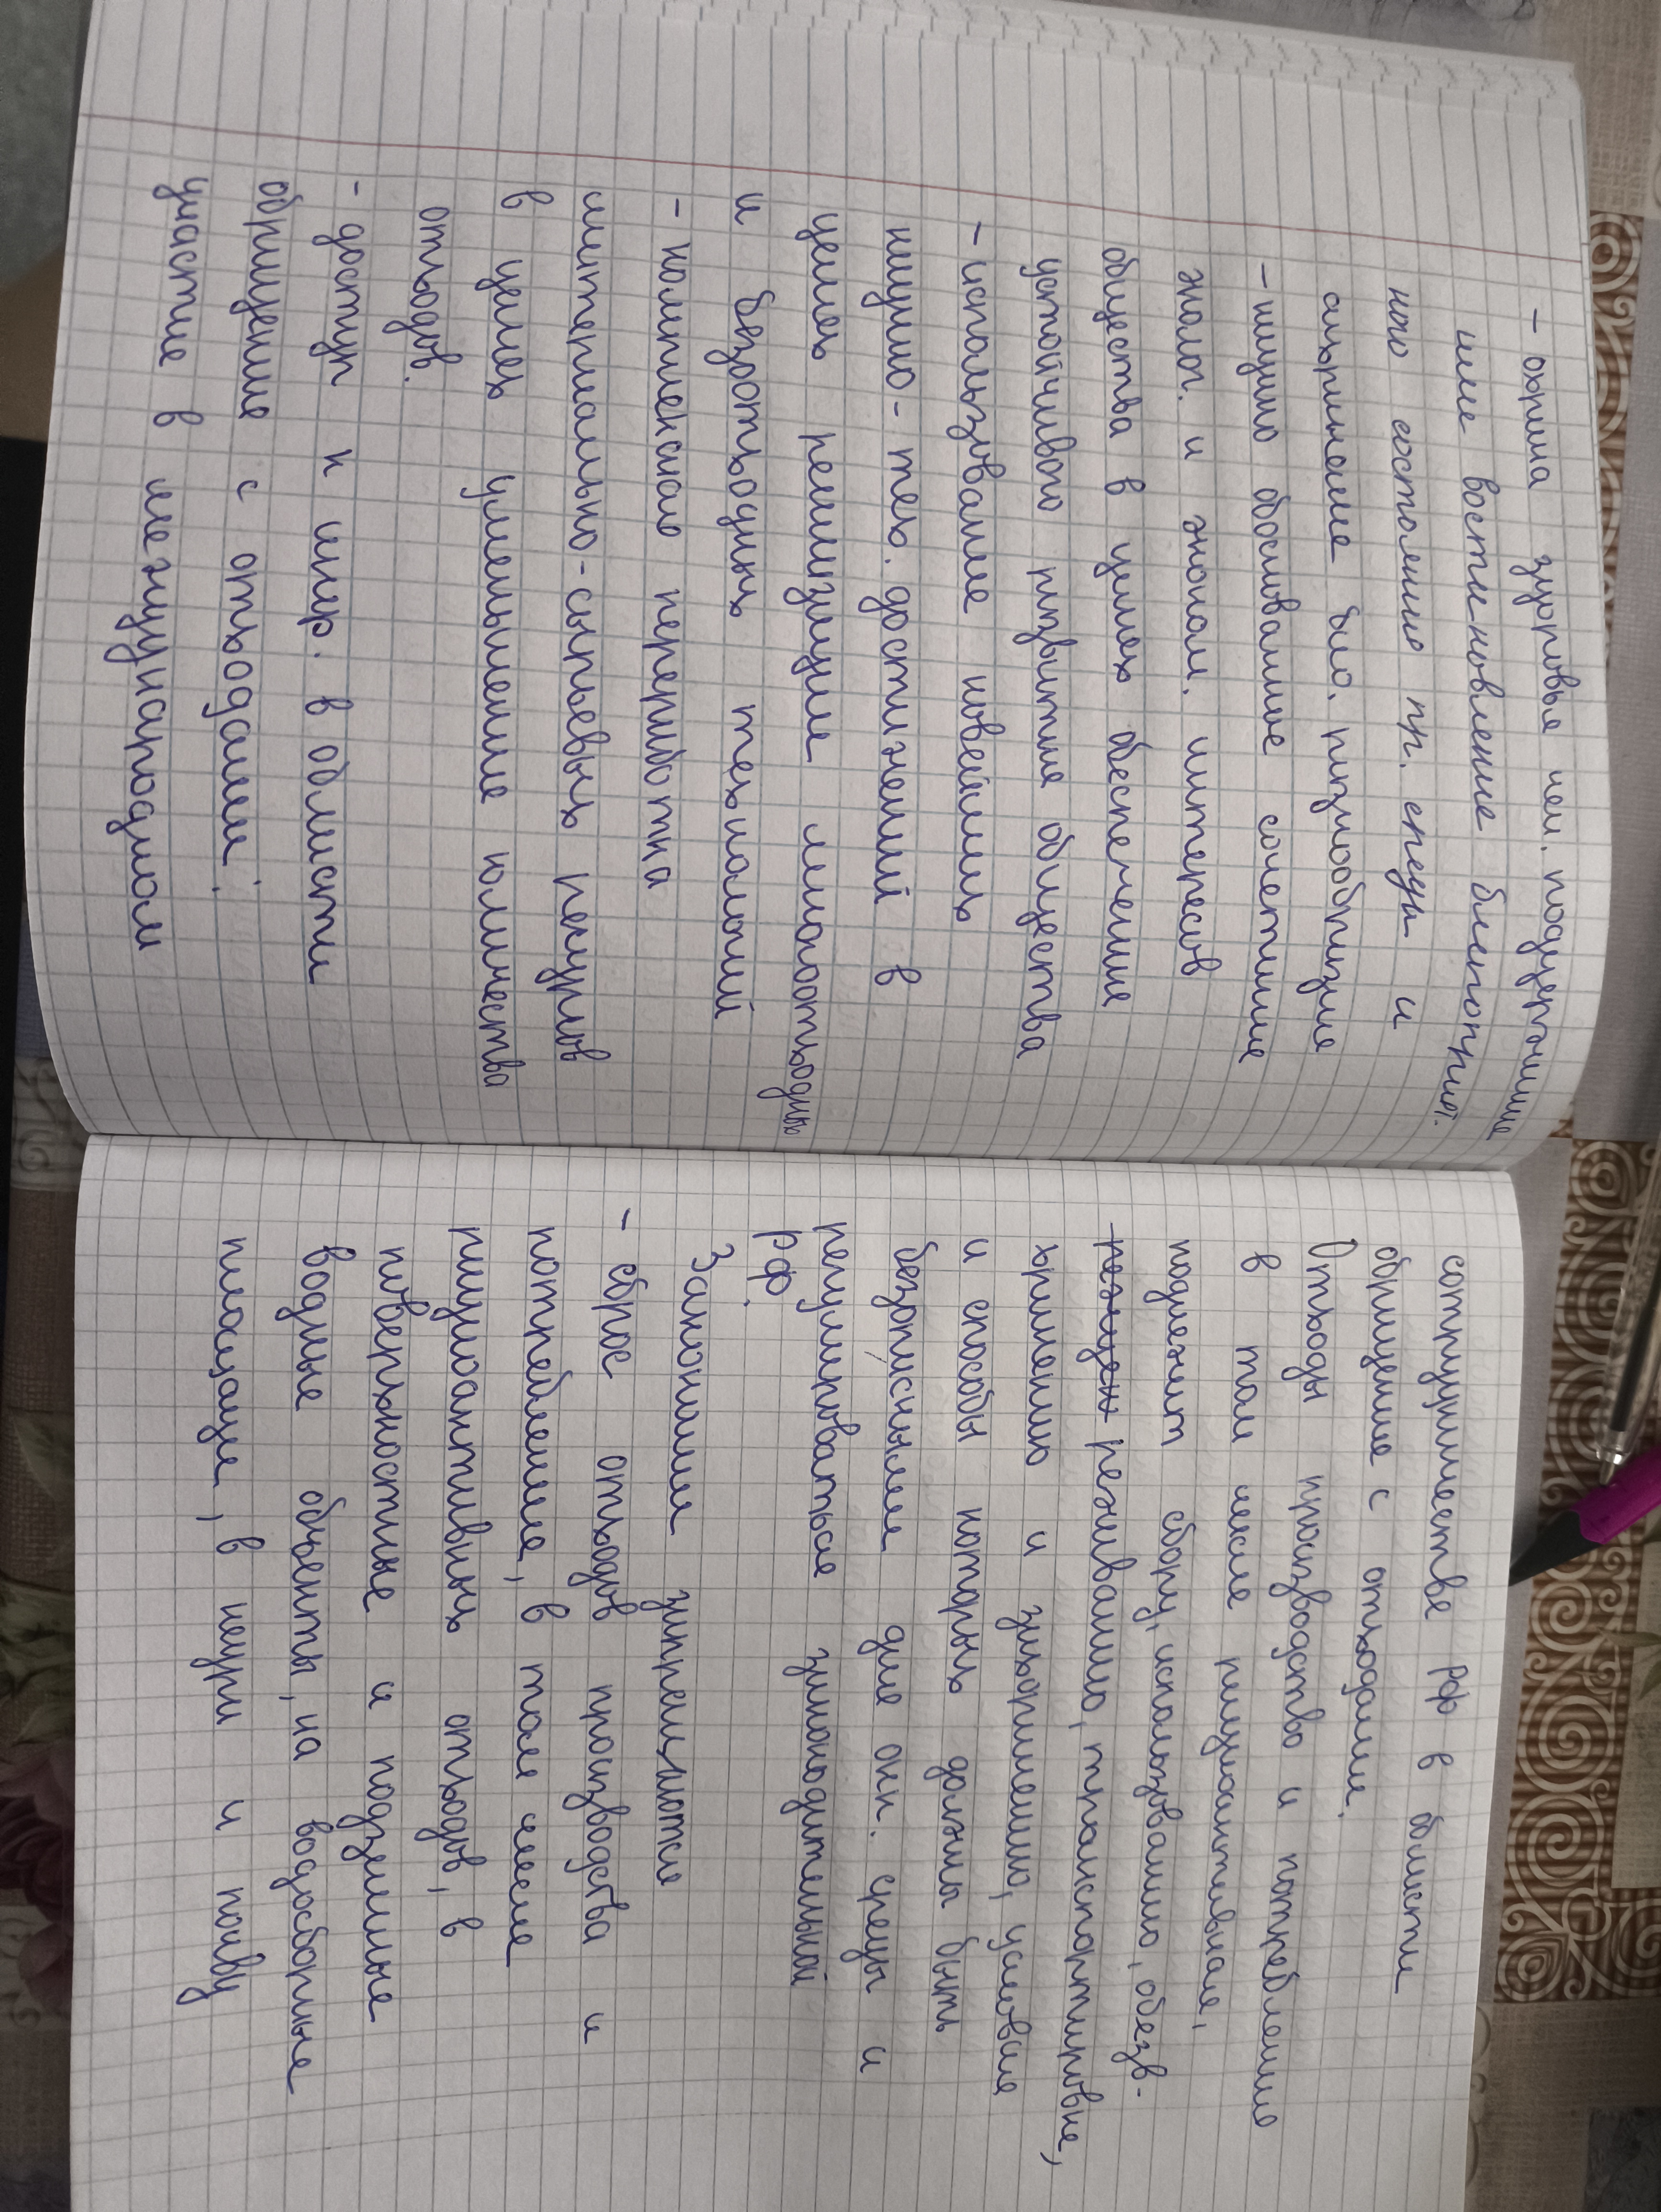 - охрана здоровья чел. поддержание
или восстановление благоприят.
ного состояния пр. среды и
сохранение био. разнообразия
- научно обоснованное сочетание
эколог. и эконом. интересов
общества в целях обеспечение
устойчивого развития общества
- использование новейших
научно-тех. достижений в
целях реализации малоотходных
и безотходных технологий
- комплексного переработка
материально-сырьевых ресурсов
в целях уменьшение количества
отходов.
- доступ к инф. в области
обращение с отходами;
участие в международном
сотрудничестве РФ в области
обращение с отходами.
Отходы производство и потребление
в том числе радиоактивная,
подлежат сбору, использованию, обезв-
режива́нию, транспортировке,
хранению и захоронению, условия
и способы которых должны быть
безопасными для окр. среды и
регулироваться законодательной
РФ.
Законом запрещаются
- сброс отходов производства и
потребление, в том числе
радиоактивных отходов, в
поверхностные и подземные
водные объекты, на водосборные
площади, в недры и почву